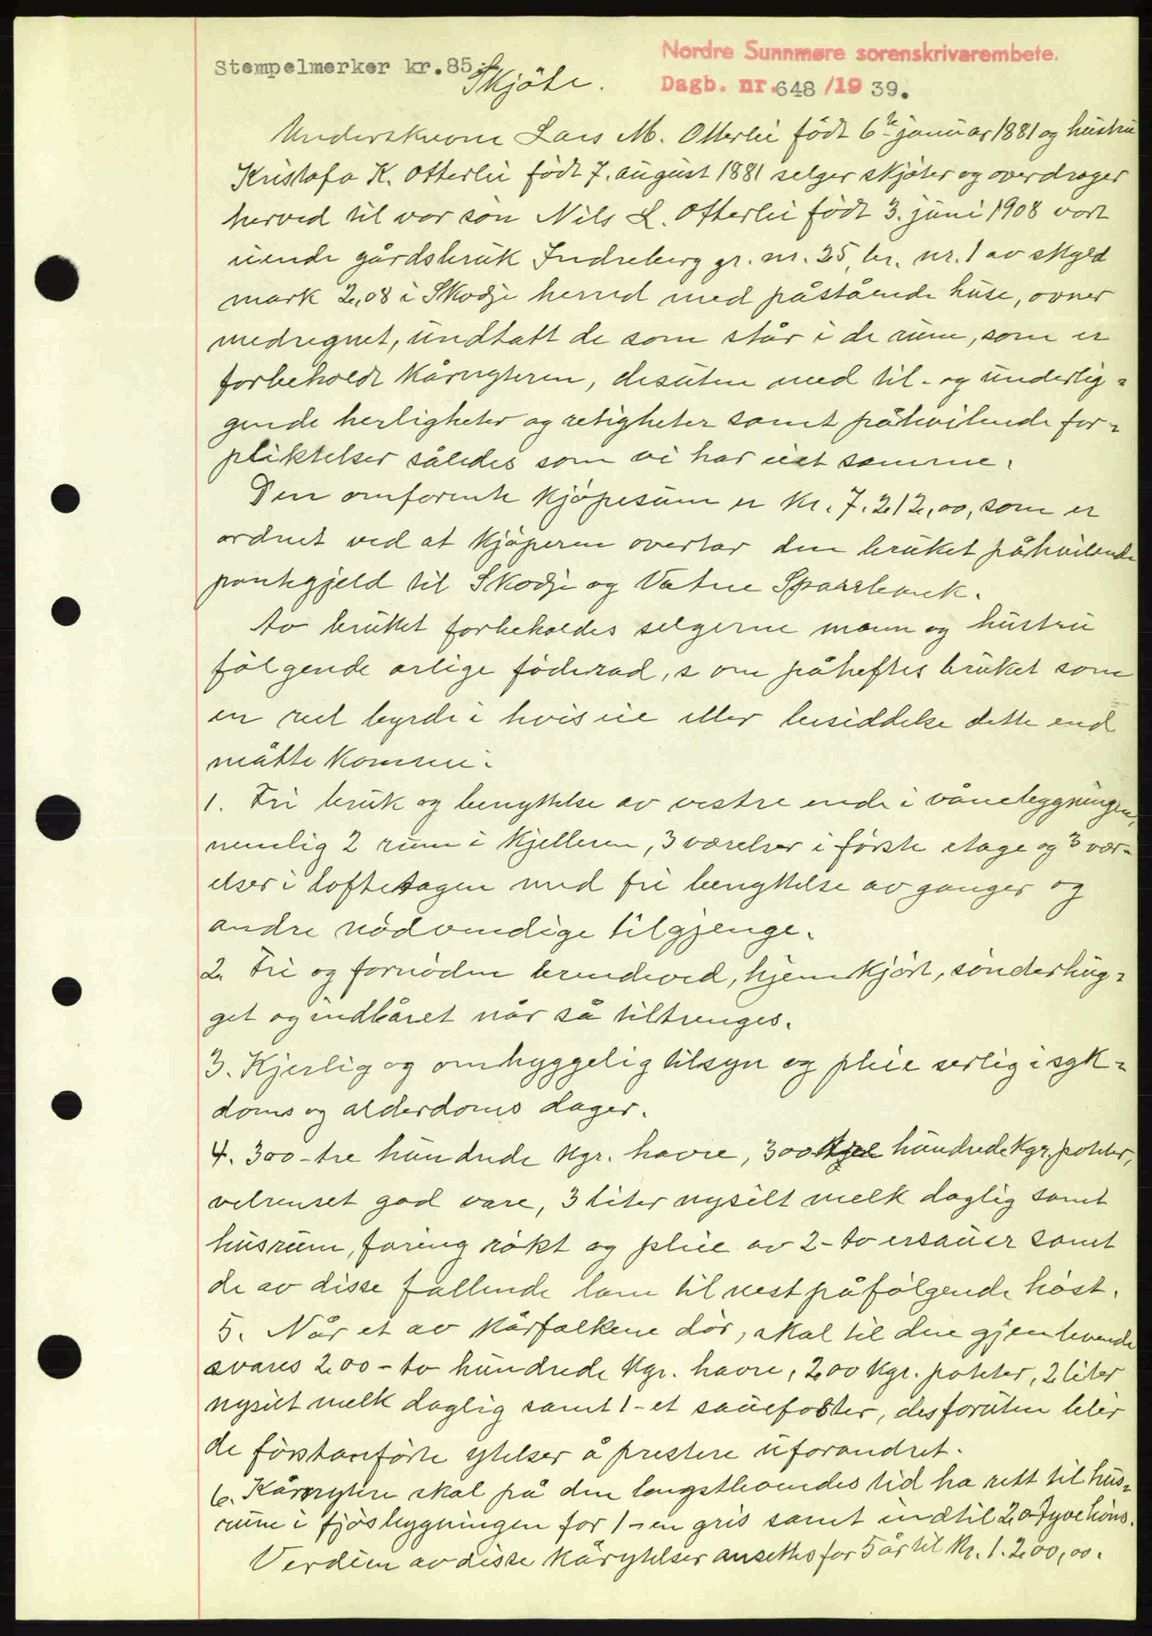 Nordre Sunnmøre sorenskrivarembete.
Stempelmerker kr.85.-
Skjøte.
Dagb. nr. 648 /19 39.
Underskrevne Lars M. Otterlei født 6te januar 1881 og hustru
Kristofa K. Otterlei født 7. august 1881 selger skjøter og overdrager
herved til vor søn Nils L. Otterlei født 3. juni 1908 vort
eiende gårdsbruk Indreberg gr. nr. 25, br. nr. 1 av skyld
mark 2,08 i Skodje herred med påstående huse, ovner
medregnet, undtatt de som står i de rum, som er
forbeholdt kårnyteren, desuten med til- og underlig=
gende herligheter og retigheter samt påhvilende for=
pliktelser således som vi har eiet samme.
Den omforente kjøpesum er kr. 7.212,00, som er
ordnet ved at kjøperen overtar den bruket påhvilende
pantegjeld til Skodje og Vatne Sparebank.
Av bruket forbeholdes selgerne mann og hustru
følgende årlige føderåd, som påheftes bruket som
en reel byrde i hvis eie eller besiddelse dette end
måtte komme:
1. Fri bruk og benyttelse av vestre ende i vånebygningen,
nemlig 2 rum i kjelleren, 3 værelser i første etage og 3 vær=
elser i loftetagen med fri benyttelse av ganger og
andre nødvendige tilgjenge.
2. Fri og fornøden brendeved, hjemkjørt, sønderhug=
get og indbåret når så tiltrenges.
3. Kjerlig og omhyggelig tilsyn og pleie serlig i syk=
doms og alderdoms dager.
4. 300 - tre hundrede kgr. havre, 300 hundrede kgr. poteter,
velrenset god vare, 3 liter nysilt melk daglig samt
husrum, foring røkt og pleie av 2 - to ersauer samt
de av disse fallende lam til nest påfølgende høst.
5. Når et av kårfolkene dør, skal til den gjenlevende
svares 200 - to hundrede kgr. havre, 200 kgr. poteter, 2 liter
nysilt melk daglig samt 1 - et sauefoster, desforuten blir
de førstanførte ytelser å prestere uforandret.
6. Kårnytere skal på den lengstlevendes tid ha rett til hus=
rum i fjøsbygningen for 1 - en gris samt indtil 20 tyve høns.
Verdien av disse kårytelser ansettes for 5 år til kr. 1.200,00.